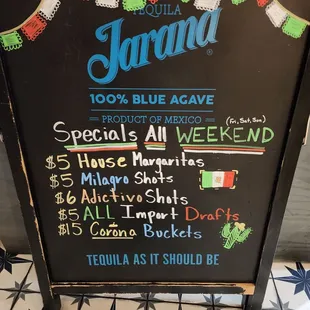 TEQUILA
Jarana®
100% BLUE AGAVE
PRODUCT OF MEXICO
Specials All WEEKEND (Fri, Sat, Sun)
$5 House Margaritas
$5 Milagro Shots
$6 Adictivo Shots
$5 ALL Import Drafts
$15 Corona Buckets
TEQUILA AS IT SHOULD BE